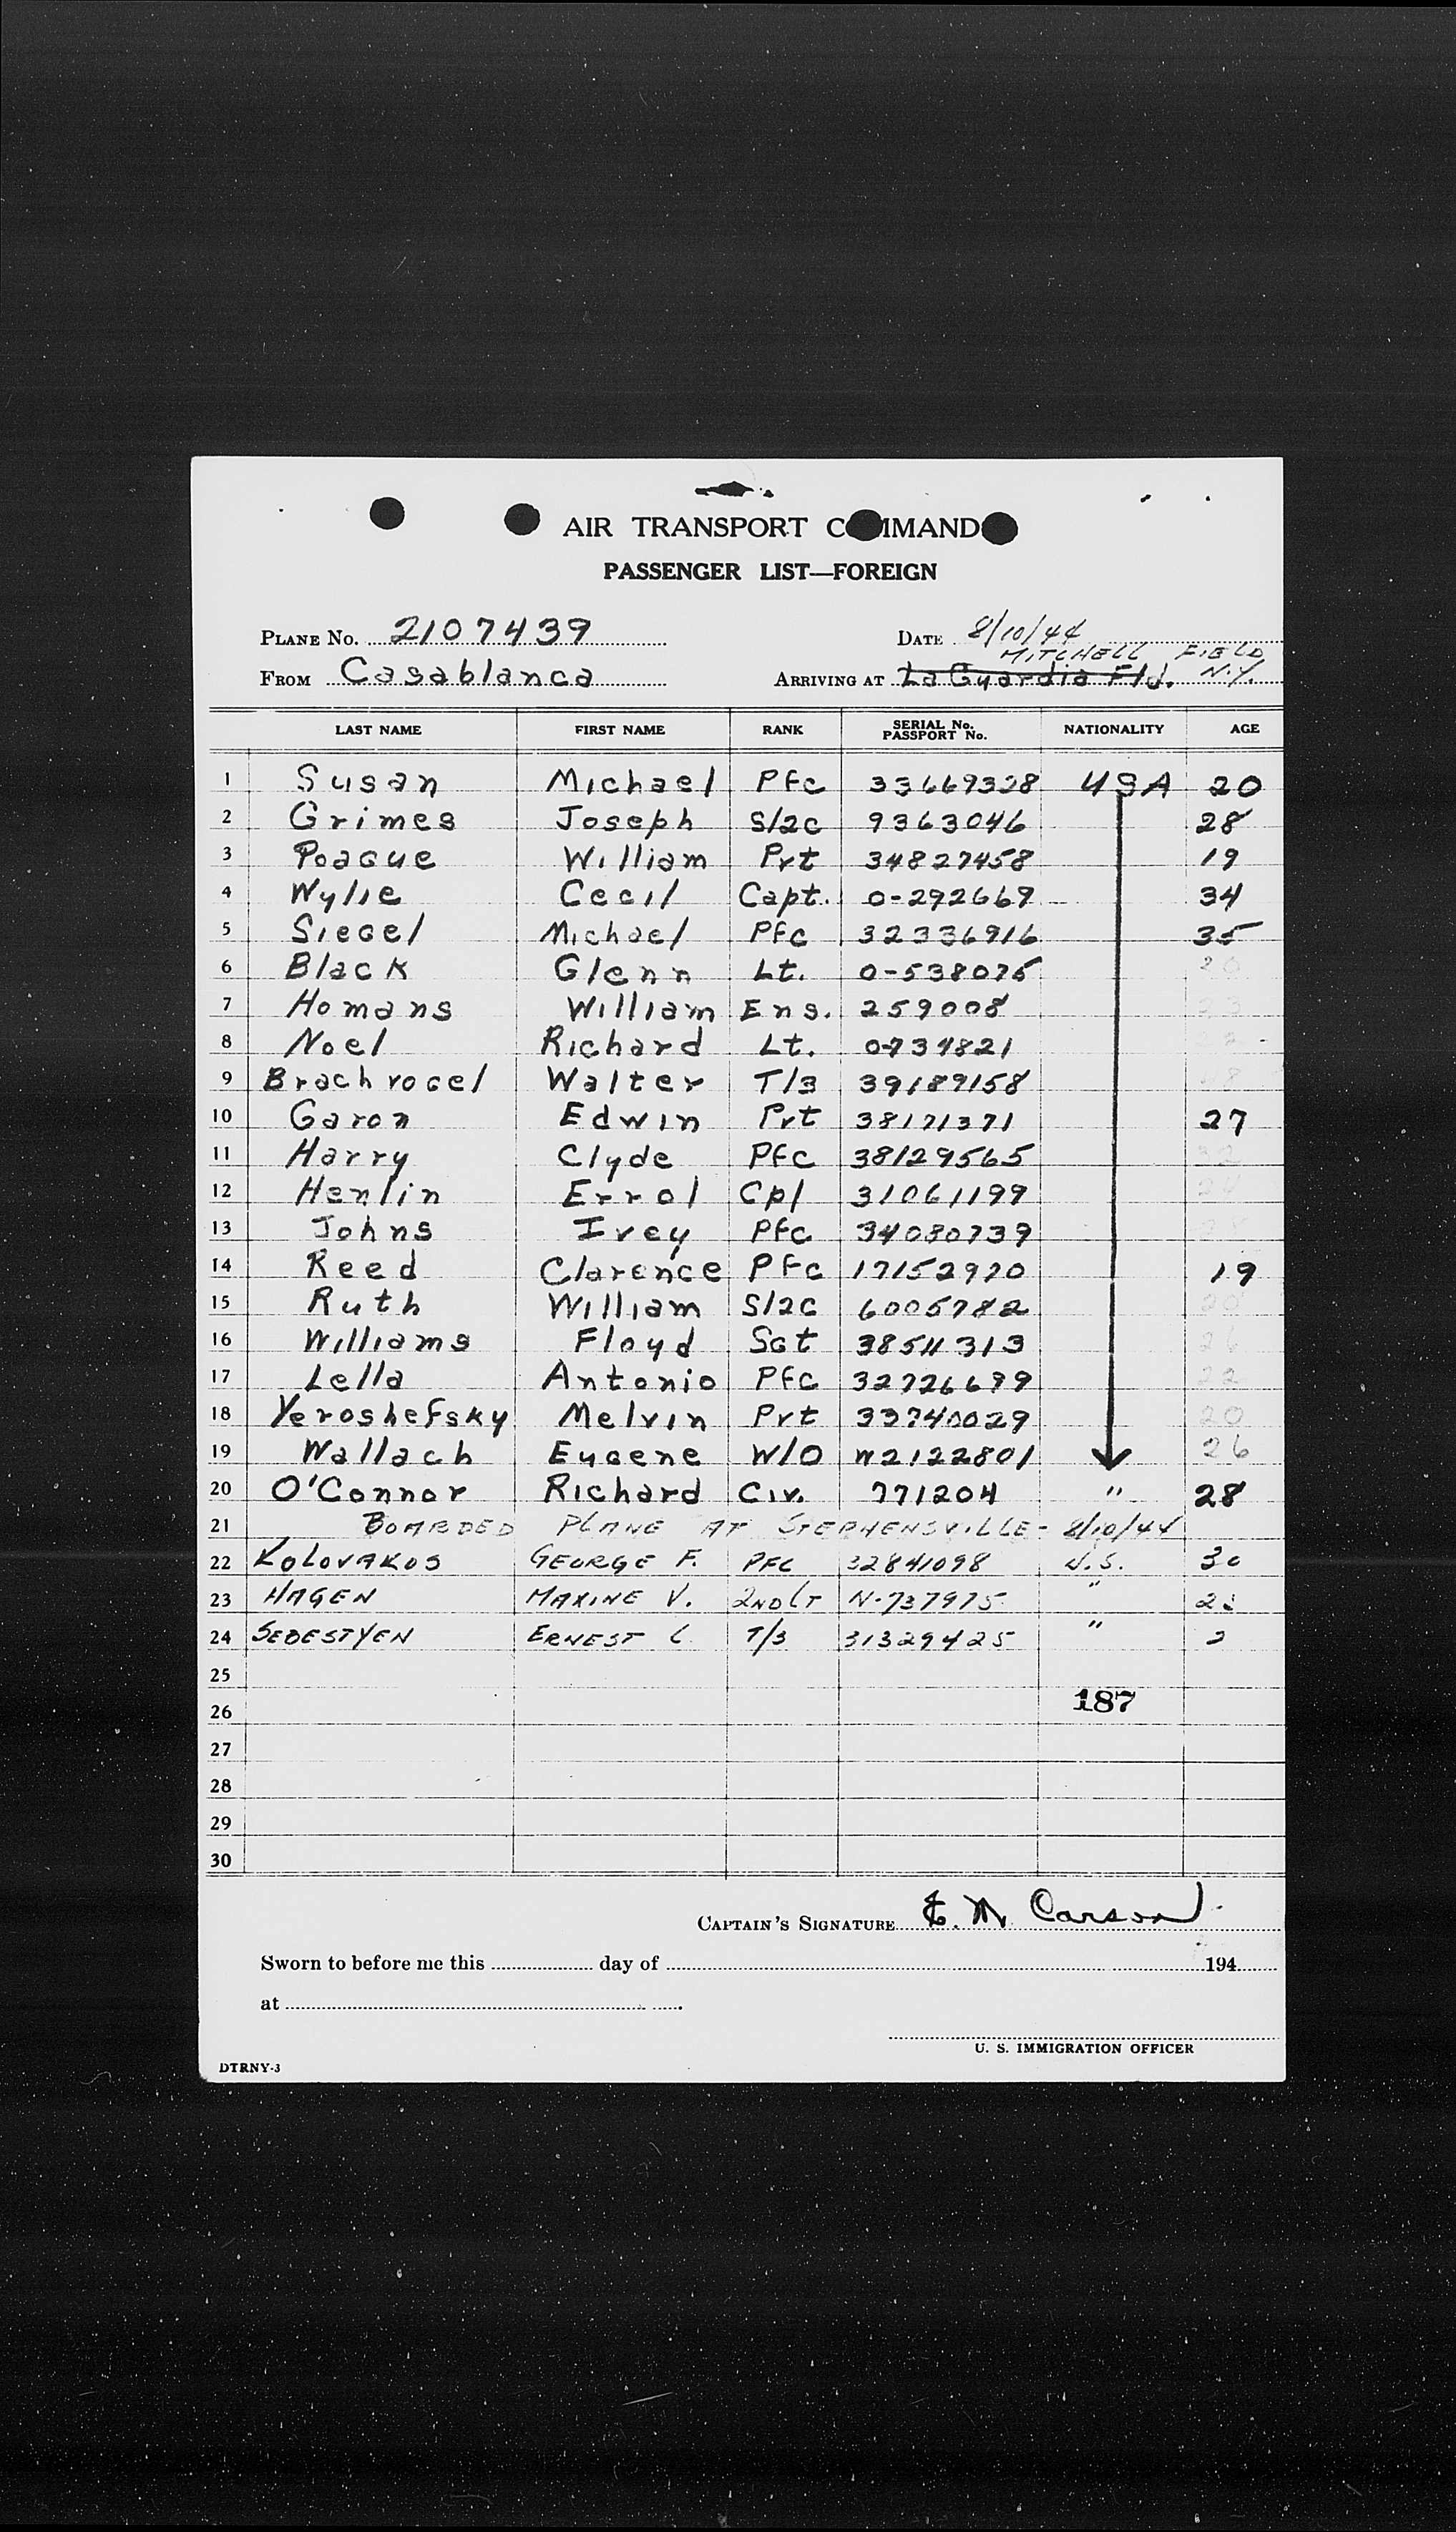 AIR TRANSPORT COMMAND
PASSENGER LIST—FOREIGN
PLANE No. 2107439 DATE 8/10/44
MITCHELL FIELD
FROM Casablanca ARRIVING AT La Guardia Fld. N.Y.
LAST NAME FIRST NAME RANK SERIAL No. PASSPORT No. NATIONALITY AGE
1 Susan Michael Pfc 33669328 USA 20
2 Grimes Joseph S/2c 9363046 28
3 Poague William Pvt 34827458 19
4 Wylie Cecil Capt. 0-292669 34
5 Siegel Michael Pfc 32336916 35
6 Black Glenn Lt. 0-538075 20
7 Homans William Ens. 259008 23
8 Noel Richard Lt. 0734821
9 Brachvogel Walter T/3 39189158 48
10 Garon Edwin Pvt 38171371 27
11 Harry Clyde Pfc 38129565 32
12 Henlin Errol Cpl 31061199 24
13 Johns Ivey Pfc 34080739
14 Reed Clarence Pfc 17152970 19
15 Ruth William S/2c 6005782 20
16 Williams Floyd Sgt 38511313 26
17 Lella Antonio Pfc 32726699 22
18 Yeroshefsky Melvin Pvt 33740029 20
19 Wallach Eugene W/O W2122801 26
20 O'Connor Richard Civ. 771204 " 28
21 BOARDED PLANE AT STEPHENSVILLE - 8/10/44
22 KOLOVAKOS GEORGE F. PFC 32841098 U.S. 30
23 HAGEN MAXINE V. 2ND LT N-737975 "
24 SEBESTYEN ERNEST C. T/3 31329425 "
25
187
26
27
28
29
30
CAPTAIN'S SIGNATURE E. M. Carson
Sworn to before me this day of 194
at
U. S. IMMIGRATION OFFICER
DTRNY-3